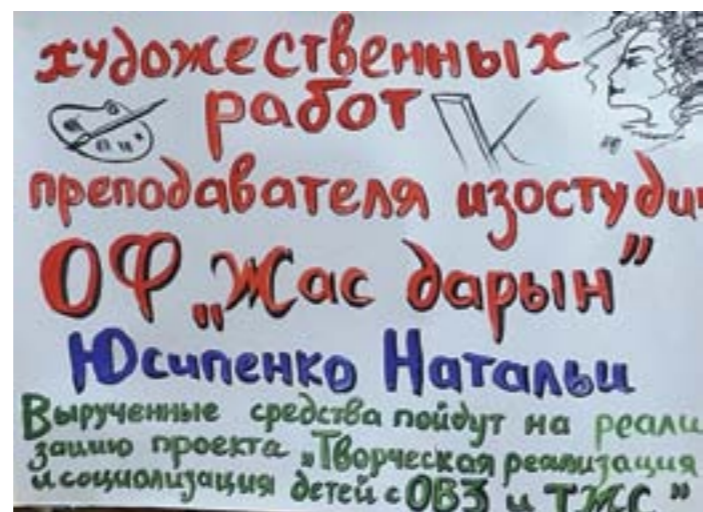 художественных
работ
преподавателя изостудии
ОФ „Жас дарын”
Юсипенко Натальи
Вырученные средства пойдут на реали
зацию проекта „Творческая реализация
и социолизация детей с ОВЗ и ТЖС”